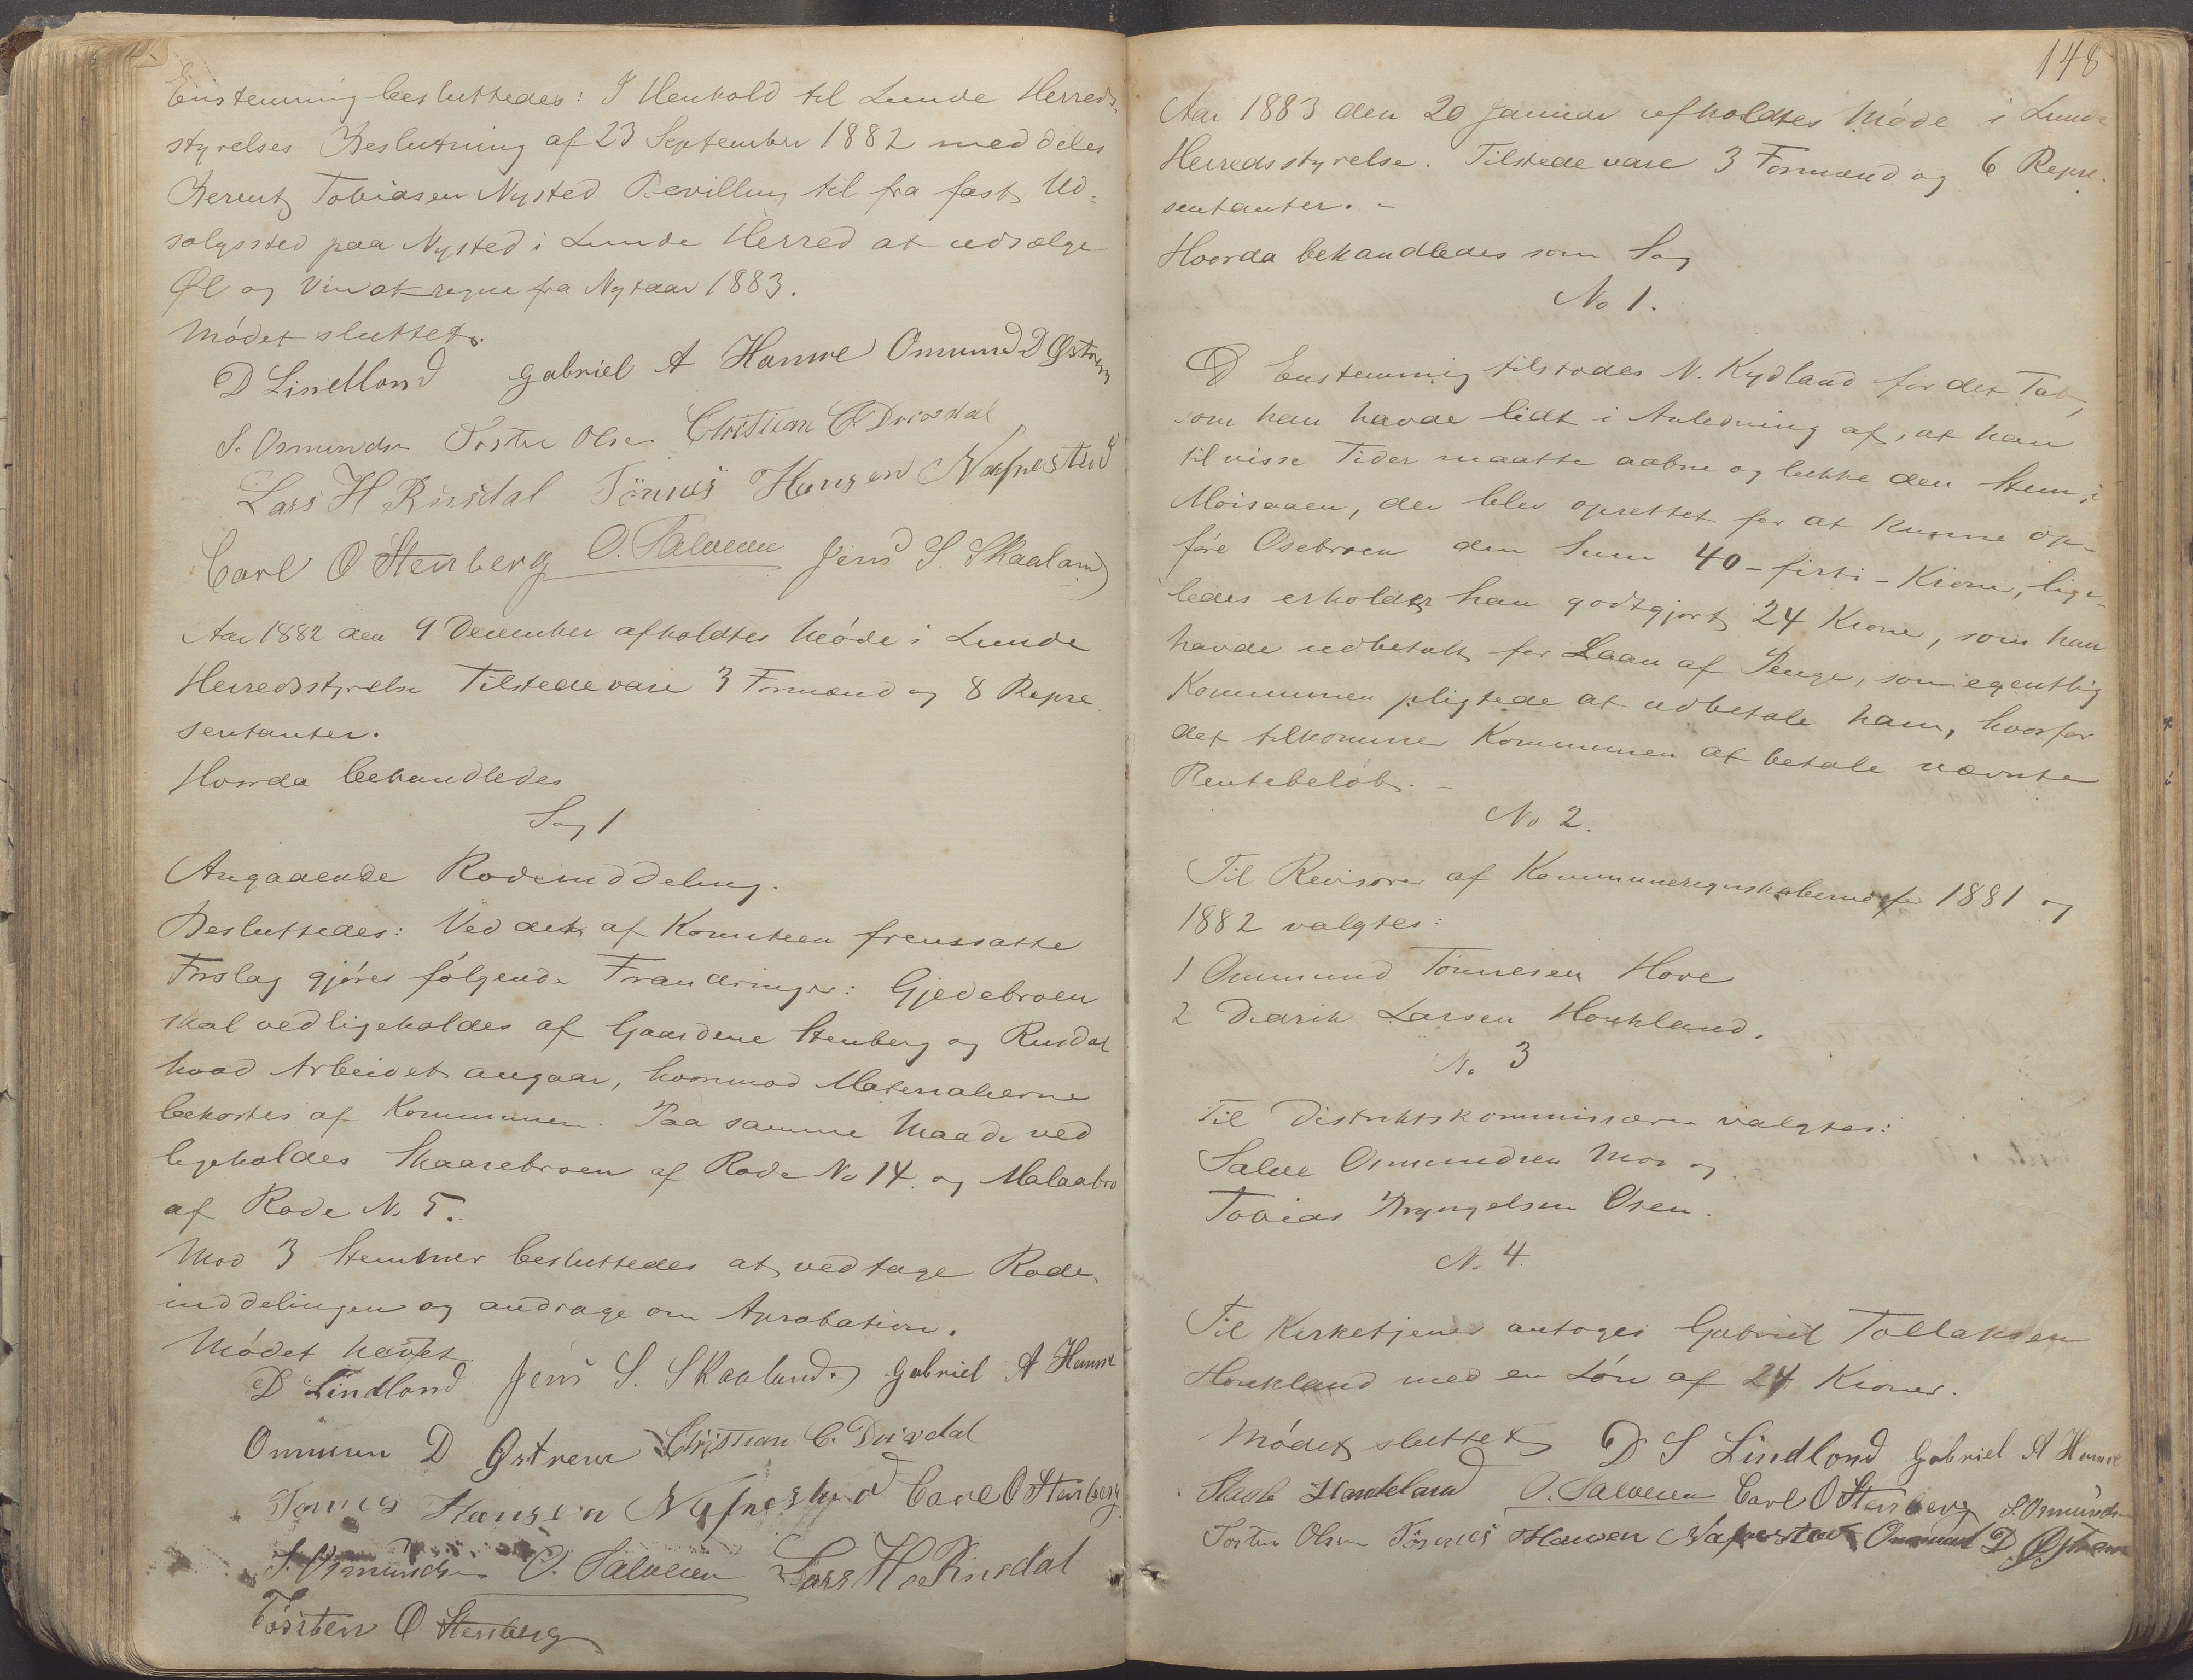 Enstemmig besluttedes: I Henhold til Lunde Herreds-
styrelses Beslutning af 23 September 1882 meddeles
Berent Tobiasen Nysted Bevilling til fra fast Ud-
salgssted paa Nysted i Lunde Herred at udsælge
Øl og Vin at regne fra Nytaar 1883.
Mödet sluttet.
D Lindland Gabriel A Hamre Omund D Østrem
S. Osmundsen Torsten Olsen Christian C Drivdal
Lars H Rusdal Tönnes Hansen Nafnestad
Carl O Stenberg O. Salvesen Jens S. Skaaland
Aar 1882 den 9 December afholdtes Möde i Lunde
Herredsstyrelse Tilstede vare 3 Formænd og 8 Repre-
sentanter.
Hvorda behandledes
Sag 1
Angaaende Rodeinddeling.
Besluttedes: Ved det af Komiteen fremsatte
Forslag gjöres fölgende Forandringer: Gjedebroen
skal vedligeholdes af Gaardene Stenberg og Rusdal
hvad Arbeidet angaar, hvorimod Materialierne
bekostes af Kommunen. Paa samme Maade ved
ligeholdes Skaarebroen af Rode No 14. og Malaabro
af Rode N. 5.
Mod 3 Stemmer besluttedes at vedtage Rode-
inddelingen og andrage om Aprobation.
Mödet hævet
D Lindland Jens S. Skaaland. Gabriel A Hamre
Ommun D Østrem Christian C. Drivdal
Tönnes Hansen Nafnestad Carl O Stenberg
S. Osmundsen O. Salvesen Lars H Rusdal
Torsten O Stenberg
148
Aar 1883 den 20 Januar afholdtes Möde i Lunde
Herredsstyrelse. Tilstede vare 3 Formænd og 6 Repre-
sentanter. -
Hvorda behandledes som Sag
No 1.
Enstemmig tilstodes N. Kydland for det Tab,
som han havde lidt i Anledning af, at han
til visse Tider maatte aabne og lukke den Stem i
Moisaaen, der blev oprettet for at kunne op-
före Osebroen den Sum 40 - firti - Kroner, lige-
ledes erholder han godtgjort 24 Krone, som han
havde udbetalt for Laan af Penge, som egentlig
Kommunen pligtede at udbetale ham, hvorfor
det tilkommer Kommunen at betale nævnte
Rentebelöb. -
No 2.
Til Revisorer af Kommuneregnskaberne for 1881 og
1882 valgtes:
1 Ommund Tönnesen Hove
2 Didrik Larsen Haukland.
No 3
Til Distriktskommissærer valgtes:
Salve Osmundsen Moi og
Tobias Tryngelsen Osen.
N. 4.
Til Kirketjener antoges Gabriel Tollaksen
Haukland med en Lön af 24 Kroner.
Mödet sluttet D S Lindland Gabriel A Hamre
Haukland O. Salvesen Carl O Stenberg S. Osmundsen
Torsten Olsen Tönnes Hansen Nafnestad Ommund D. Østrem